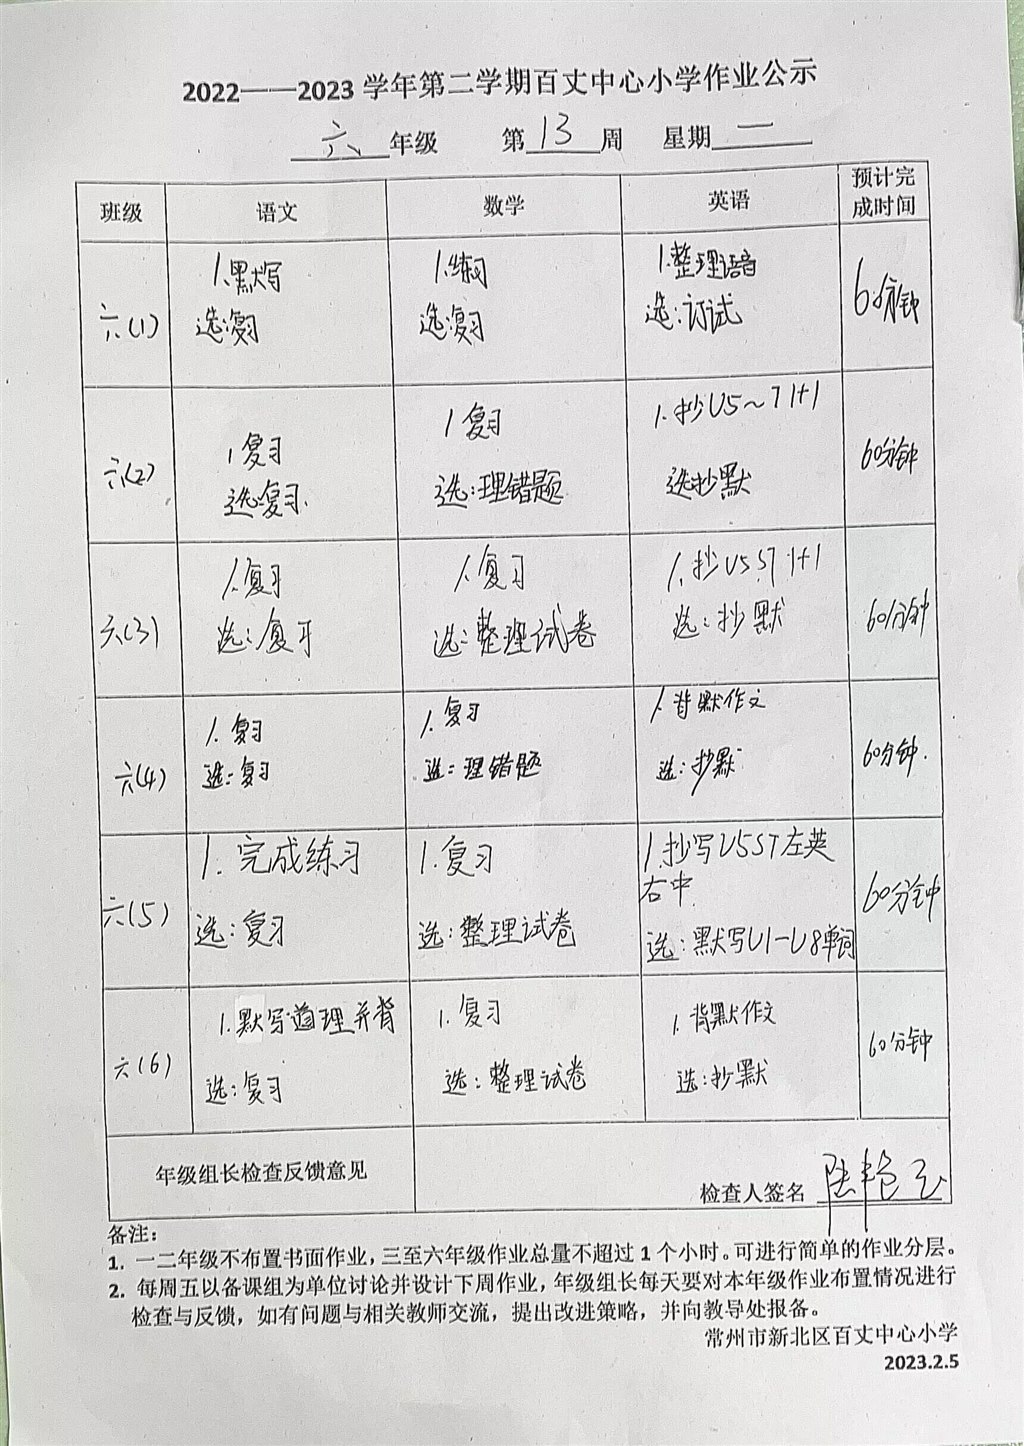 2022——2023 学年第二学期百丈中心小学作业公示
六 年级 第 13 周 星期 二
班级 语文 数学 英语 预计完成时间
六(1)
1.默写
选:复习
1.练习
选:复习
1.整理语音
选:订试
60分钟
六(2)
1复习
选:复习.
1复习
选:理错题
1.抄U5~7 1+1
选抄默
60分钟
六(3)
1.复习
选:复习
1.复习
选:整理试卷
1.抄U5 ST 1+1
选:抄默
60分钟
六(4)
1.复习
选:复习
1.复习
选:理错题
1.背默作文
选:抄默
60分钟.
六(5)
1.完成练习
选:复习
1.复习
选:整理试卷
1.抄写U5ST左英
右中
选:默写U1-U8单词
60分钟
六(6)
1.默写道理并背
选:复习
1.复习
选:整理试卷
1.背默作文
选:抄默
60分钟
年级组长检查反馈意见
检查人签名
备注:
1. 一二年级不布置书面作业，三至六年级作业总量不超过 1 个小时。可进行简单的作业分层。
2. 每周五以备课组为单位讨论并设计下周作业，年级组长每天要对本年级作业布置情况进行
检查与反馈，如有问题与相关教师交流，提出改进策略，并向教导处报备。
常州市新北区百丈中心小学
2023.2.5